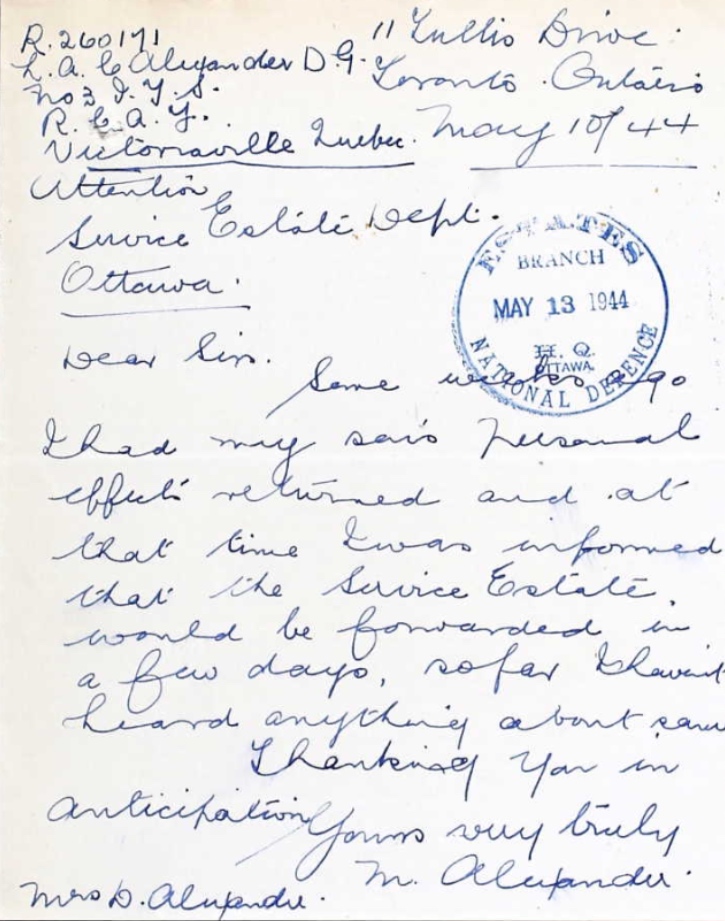 R.260171
L.A.C Alexander D.G.
No 3 I.T.S.
R.C.A.F.
Victoriaville Quebec.
11 Tullis Drive.
Toronto. Ontario
May 10/44
Attention
Service Estate Dept.
Ottawa.
ESTATES
BRANCH
MAY 13 1944
H. Q.
OTTAWA.
NATIONAL DEFENCE
Dear Sir.
Some weeks ago
I had my son's personal
effects returned and at
that time I was informed
that the Service Estate
would be forwarded in
a few days, so far I havent
heard anything about same
Thanking You in
anticipation
Yours very truly
M. Alexander.
Mrs D. Alexander.